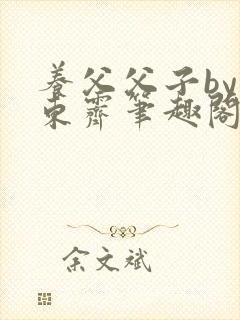 养父父子by
东霁笔趣阁
余文斌